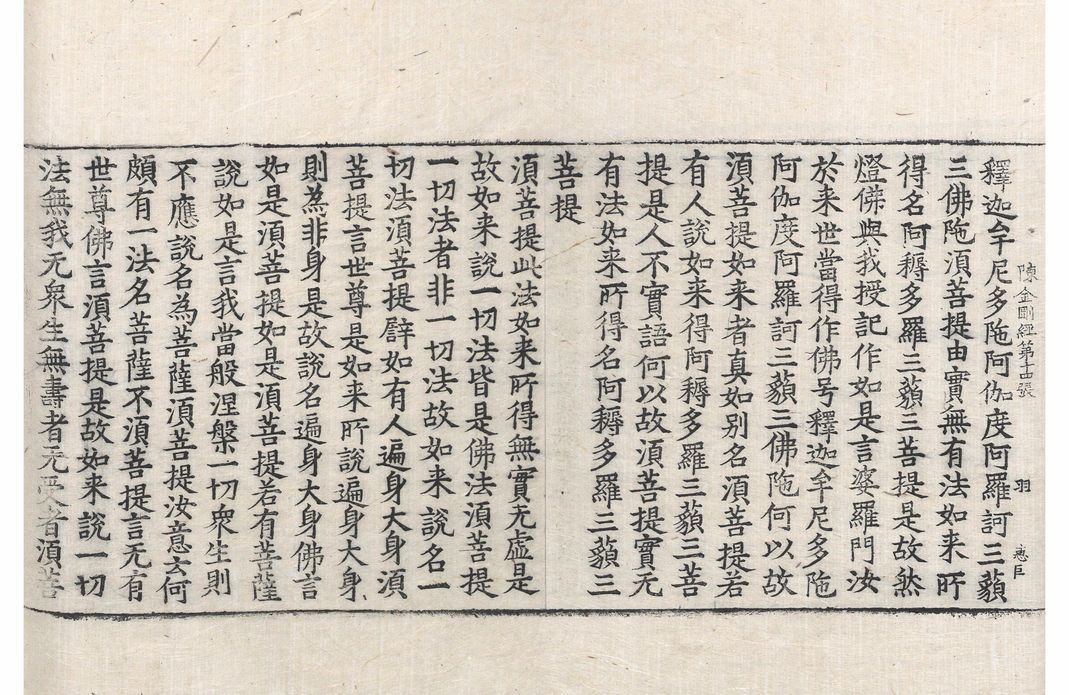 陳金剛經第十四張 羽 忠巨
釋迦牟尼多陁阿伽度阿羅訶三藐
三佛陁湏菩提由實無有法如来所
得名阿耨多羅三藐三菩提是故然
燈佛與我授記作如是言婆羅門汝
於来世當得作佛号釋迦牟尼多陁
阿伽度阿羅訶三藐三佛陁何以故
湏菩提如来者真如別名湏菩提若
有人說如来得阿耨多羅三藐三菩
提是人不實語何以故湏菩提實无
有法如来所得名阿耨多羅三藐三
菩提
湏菩提此法如来所得無實无虛是
故如来說一切法皆是佛法湏菩提
一切法者非一切法故如来說名一
切法湏菩提譬如有人遍身大身湏
菩提言世尊是如来所說遍身大身
則為非身是故說名遍身大身佛言
如是湏菩提如是湏菩提若有菩薩
說如是言我當般涅槃一切衆生則
不應說名為菩薩湏菩提汝意云何
頗有一法名菩薩不湏菩提言无有
世尊佛言湏菩提是故如来說一切
法無我无衆生無壽者无受者湏菩